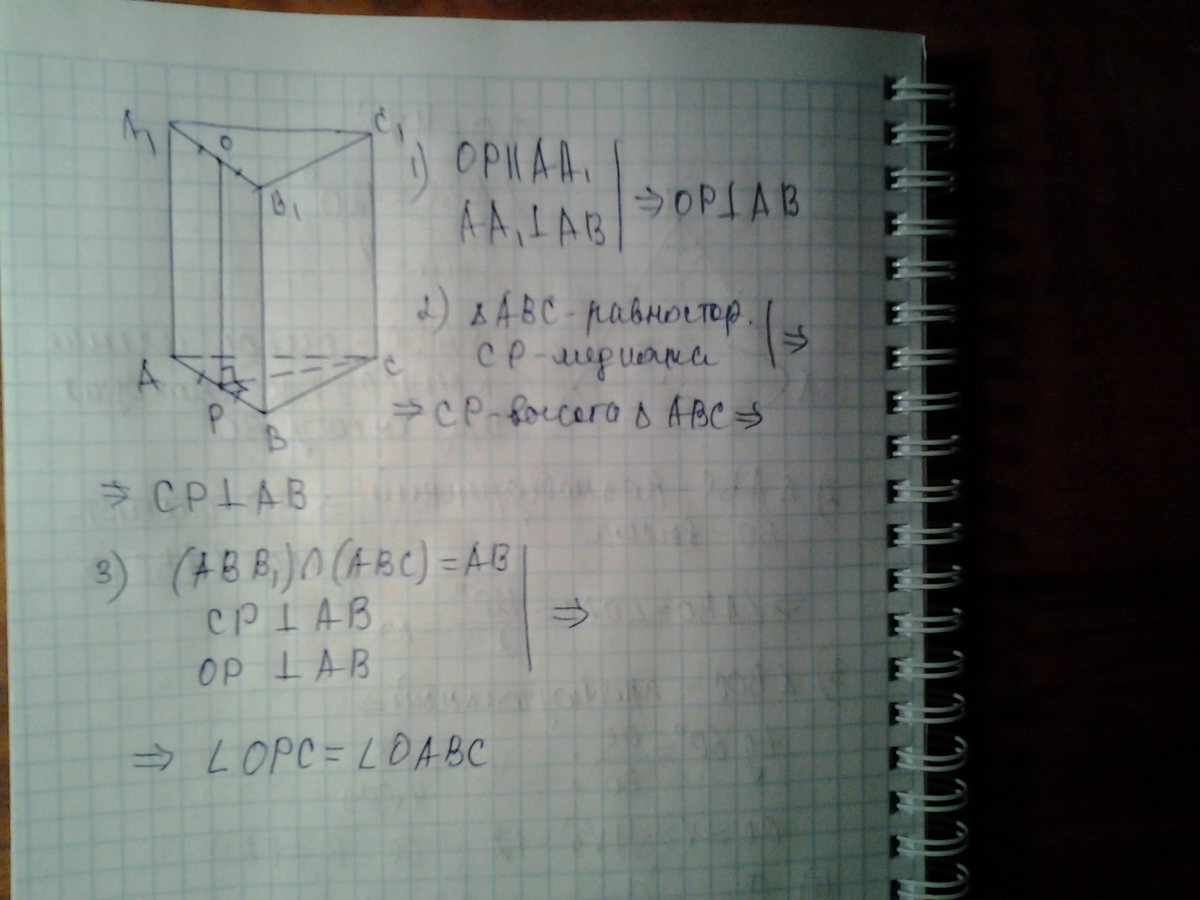 A₁ O C₁
B₁
A P B C
1) OP||AA₁
AA₁⊥AB
⇒ OP⊥AB
2) ΔABC - равностор.
CP - медиана
⇒
⇒ CP - высота Δ ABC ⇒
⇒ CP⊥AB
3) (ABB₁)∩(ABC) = AB
CP ⊥ AB
OP ⊥ AB
⇒
⇒ ∠OPC = ∠OABC